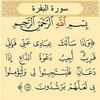 سورة البقرة
بِسْمِ اللَّهِ الرَّحْمَٰنِ الرَّحِيمِ
﴿وَإِذَا سَأَلَكَ عِبَادِي عَنِّي فَإِنِّي
قَرِيبٌ أُجِيبُ دَعْوَةَ الدَّاعِ إِذَا
دَعَانِ فَلْيَسْتَجِيبُوا لِي وَلْيُؤْمِنُوا
بِي لَعَلَّهُمْ يَرْشُدُونَ﴾